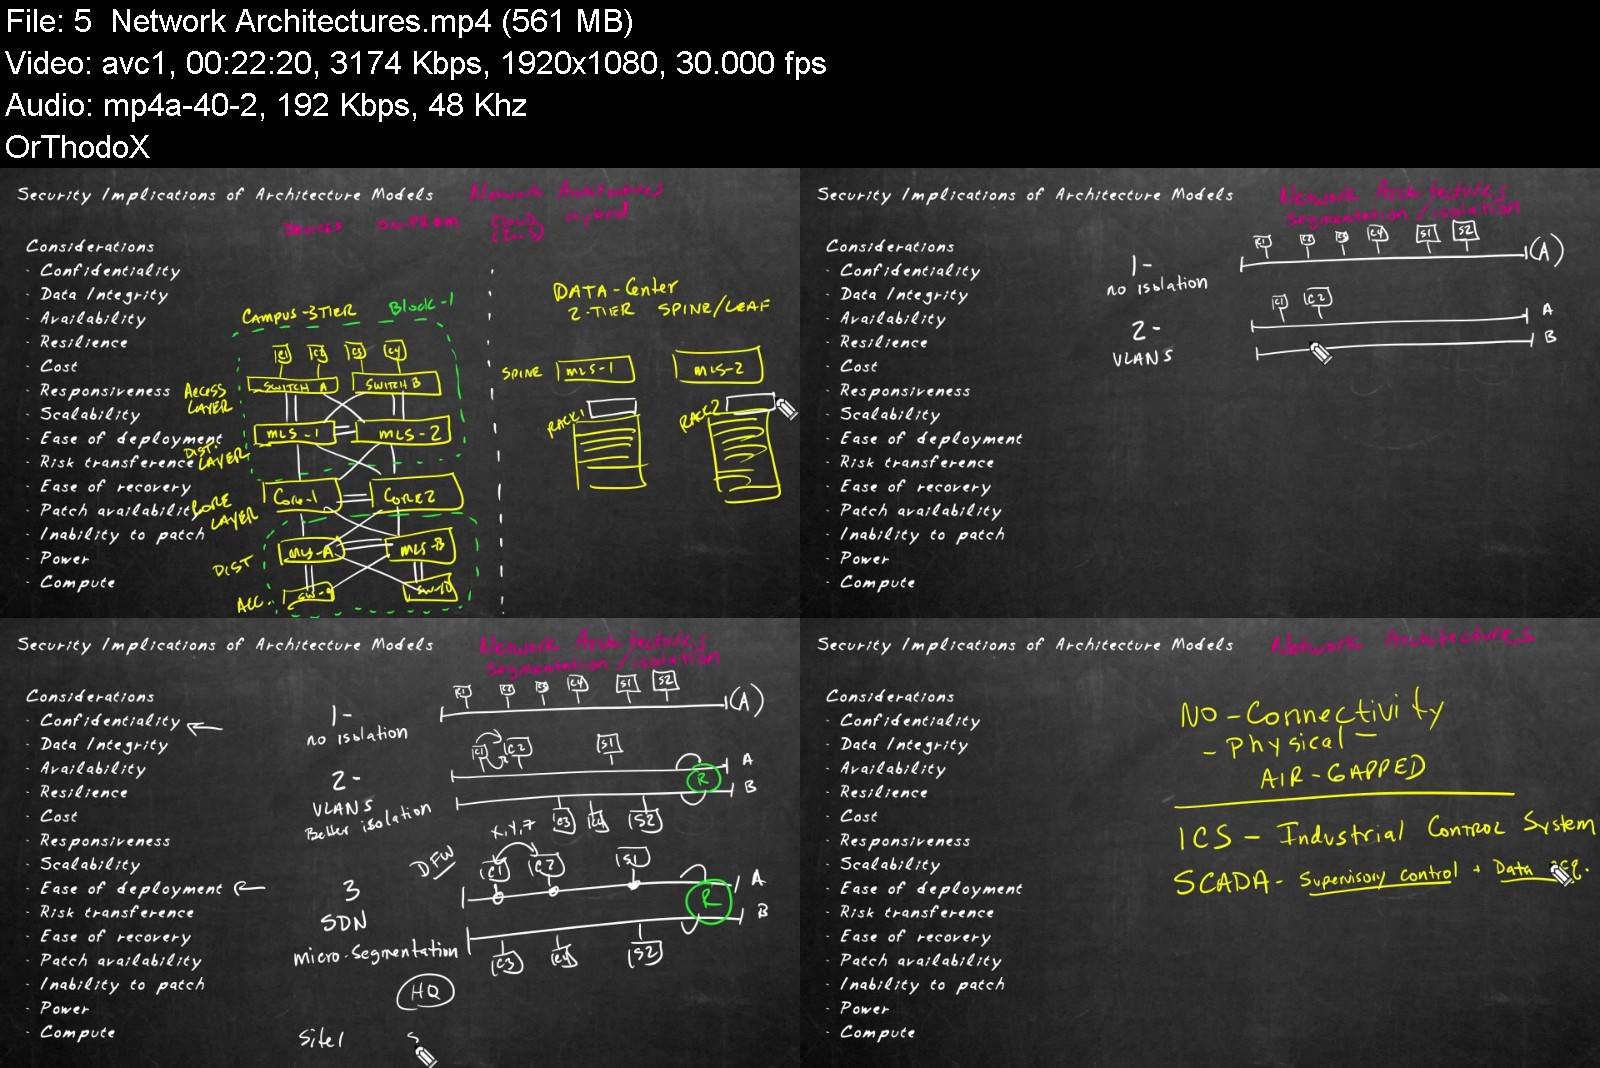 File: 5  Network Architectures.mp4 (561 MB)
Video: avc1, 00:22:20, 3174 Kbps, 1920x1080, 30.000 fps
Audio: mp4a-40-2, 192 Kbps, 48 Khz
OrThodoX
Security Implications of Architecture Models
Network Architectures
Devices On-Prem Cloud Hybrid
Considerations
- Confidentiality
- Data Integrity
- Availability
- Resilience
- Cost
- Responsiveness
- Scalability
- Ease of deployment
- Risk transference
- Ease of recovery
- Patch availability
- Inability to patch
- Power
- Compute
CAMPUS-3TIER Block-1
C1 C2 C3 C4
ACCESS LAYER
SWITCH A SWITCH B
DIST. LAYER
MLS-1 MLS-2
CORE LAYER
Core-1 CORE2
DIST
MLS-A MLS-B
ACC.
DATA-Center
2-TIER SPINE/LEAF
SPINE MLS-1 MLS-2
RACK1 RACK2
Security Implications of Architecture Models
Network Architectures
Segmentation/isolation
Considerations
- Confidentiality
- Data Integrity
- Availability
- Resilience
- Cost
- Responsiveness
- Scalability
- Ease of deployment
- Risk transference
- Ease of recovery
- Patch availability
- Inability to patch
- Power
- Compute
1-
no isolation
C1 C2 C3 C4 S1 S2
(A)
2-
VLANS
C1 C2
A
B
Security Implications of Architecture Models
Network Architectures
Segmentation/isolation
Considerations
- Confidentiality
- Data Integrity
- Availability
- Resilience
- Cost
- Responsiveness
- Scalability
- Ease of deployment
- Risk transference
- Ease of recovery
- Patch availability
- Inability to patch
- Power
- Compute
1-
no isolation
C1 C2 C3 C4 S1 S2
(A)
2-
VLANS
Better isolation
C1 C2 S1
R
A
B
C3 C4 S2
X,Y,Z
DFW
3
SDN
micro-segmentation
C1 C2 S1
R
A
B
C3 C4 S2
HQ
Site1
S
Security Implications of Architecture Models
Network Architectures
Considerations
- Confidentiality
- Data Integrity
- Availability
- Resilience
- Cost
- Responsiveness
- Scalability
- Ease of deployment
- Risk transference
- Ease of recovery
- Patch availability
- Inability to patch
- Power
- Compute
NO-Connectivity
- Physical -
AIR-GAPPED
ICS - Industrial Control System
SCADA - Supervisory control + Data